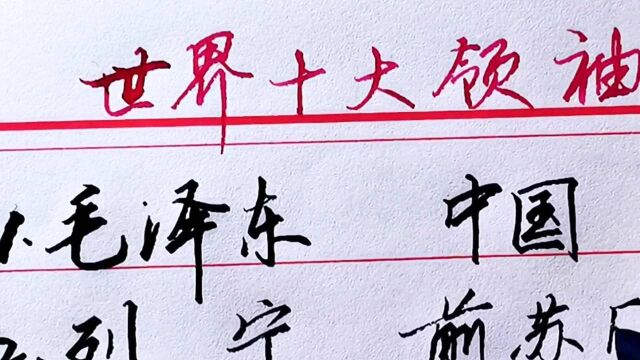 世界十大领袖
1.毛泽东 中国
2.列宁 前苏